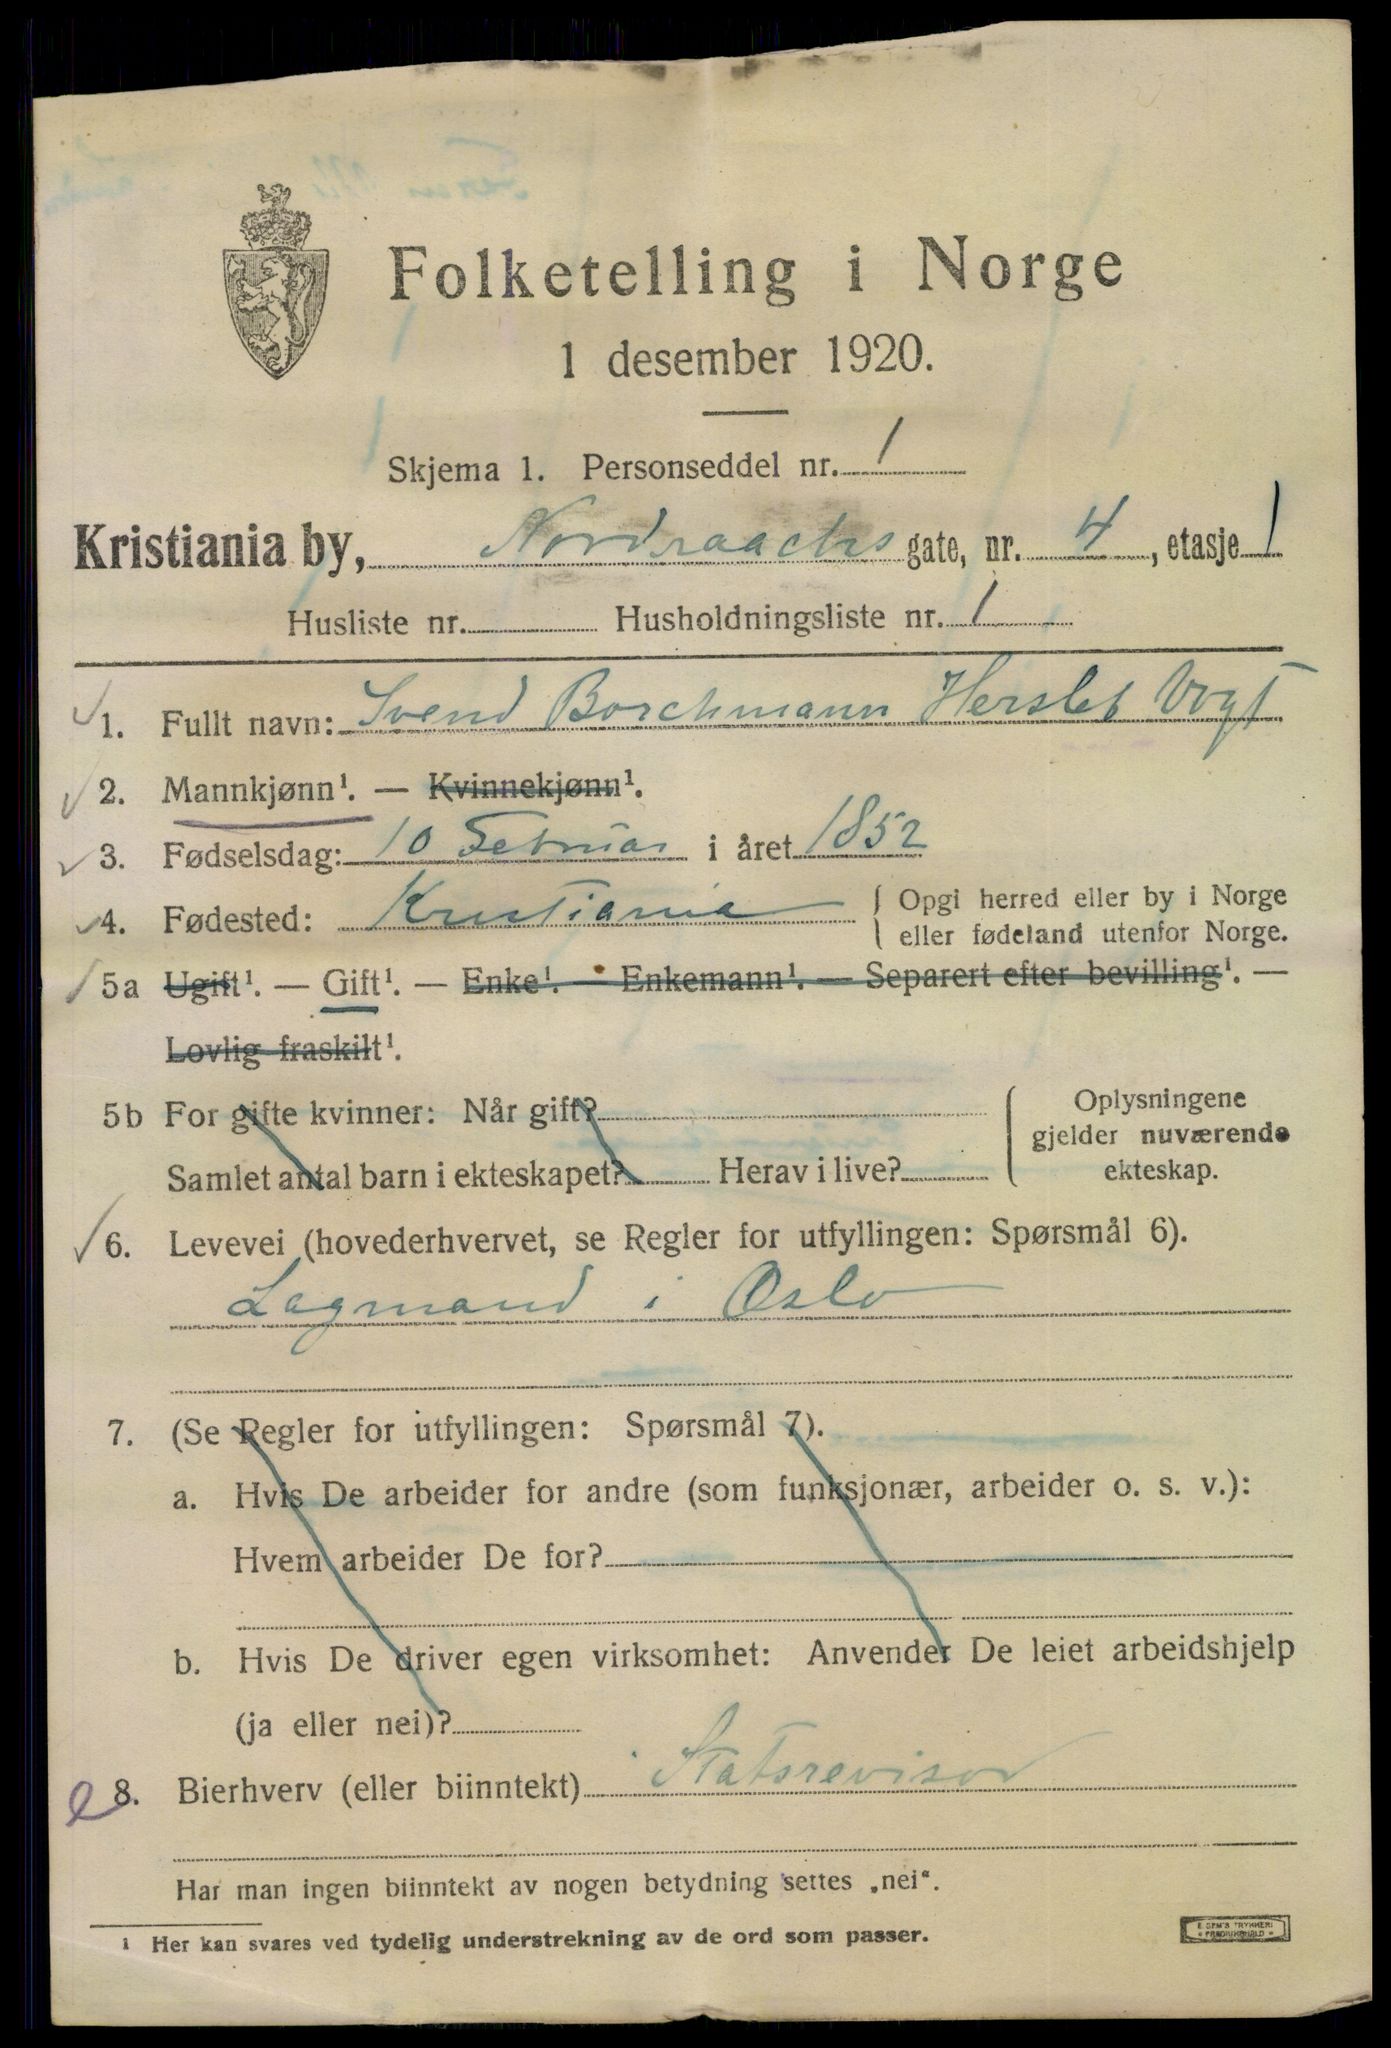 Folketelling i Norge
1 desember 1920.
Skjema 1. Personseddel nr. 1
Kristiania by, Nordraachs gate, nr. 4, etasje 1
Husliste nr. Husholdningsliste nr. 1
1. Fullt navn: Svend Borchmann Hersleb Vogt
2. Mannkjønn¹. — Kvinnekjønn¹.
3. Fødselsdag: 10 Februar i året 1852
4. Fødested: Kristiania { Opgi herred eller by i Norge
eller fødeland utenfor Norge.
5a Ugift¹. — Gift¹. — Enke¹. — Enkemann¹. — Separert efter bevilling¹. —
Lovlig fraskilt¹.
5b For gifte kvinner: Når gift? { Oplysningene
gjelder nuværende
Samlet antal barn i ekteskapet? Herav i live? ekteskap.
6. Levevei (hovederhvervet, se Regler for utfyllingen: Spørsmål 6).
Lagmand i Oslo
7. (Se Regler for utfyllingen: Spørsmål 7).
a. Hvis De arbeider for andre (som funksjonær, arbeider o. s. v.):
Hvem arbeider De for?
b. Hvis De driver egen virksomhet: Anvender De leiet arbeidshjelp
(ja eller nei)?
8. Bierhverv (eller biinntekt) Statsrevisor
Har man ingen biinntekt av nogen betydning settes „nei“.
¹ Her kan svares ved tydelig understrekning av de ord som passer.
E. SEM'S TRYKKERI
FREDRIKSHALD